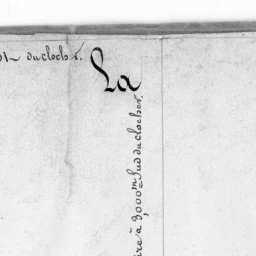 du clocher.
La
à 3,000m Sud du clocher